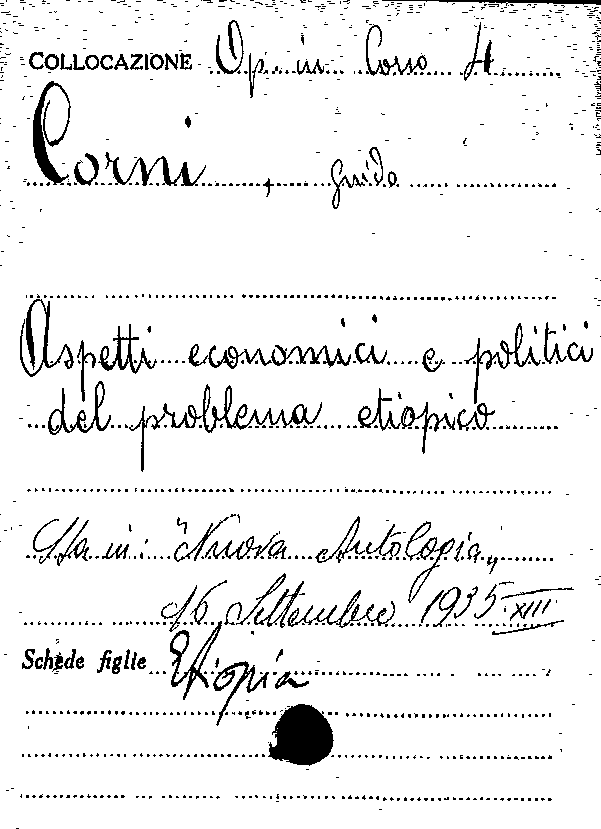 COLLOCAZIONE Op. in Corso 4
Corni, Guido
Aspetti economici e politici
del problema etiopico
Sta in: "Nuova Antologia„
16 Settembre 1935 XIII
Schede figlie Etiopia